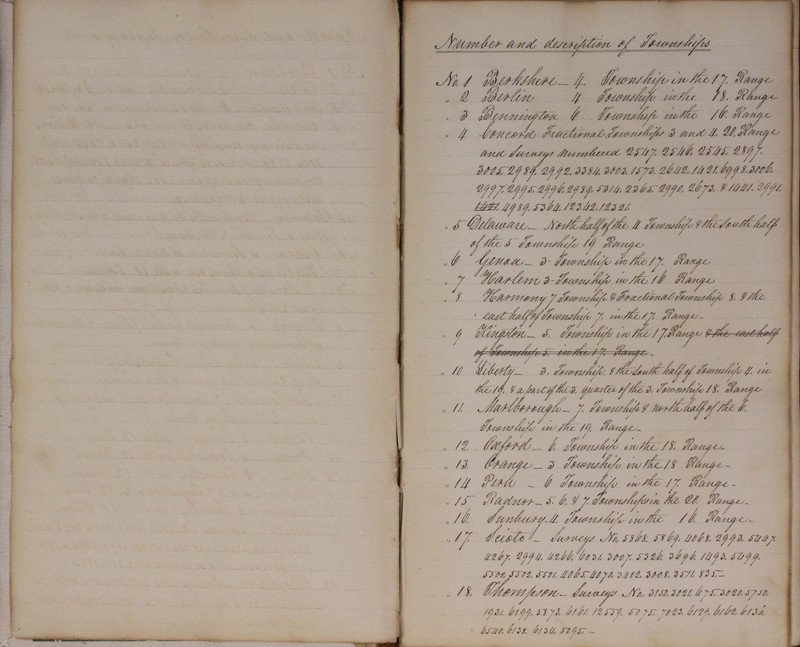 Number and description of Townships
No. 1 Berkshire — 4. Township in the 17. Range
" 2 Berlin 4 Township in the 18. Range
" 3 Bennington 6 Township in the 16. Range
" 4 Concord Fractional Townships 3 and 4. 20. Range
and Surveys numbered 2547. 2546. 2545. 2897.
3005. 2989. 2992. 3384. 3003. 1573. 2642. 1421. 6998. 3006.
2997. 2995. 2996. 2989. 5814. 2365. 2990. 2673. & 1441. 2991.
1421. 4989. 5364. 12342. 12321.
" 5 Delaware — North half of the 4 Township & the South half
of the 5 Township 19 Range
" 6 Genoa — 3- Township in the 17. Range
" 7 Harlem 3- Township in the 16 Range
" 8 Harmony 7 Township & Fractional Township 8. & the
east half of Township 7. in the 17. Range -
" 9 Kingston — 5. Township in the 17 Range & the east half
of Township 5. in the 17. Range -
" 10 Liberty — 3. Township & the South half of Township 4. in
the 19. & a part of the 3. quarter of the 3. Township 18. Range
" 11. Marlborough — 7. Township & North half of the 6.
Township in the 19. Range -
" 12 Oxford — 6. Township in the 18. Range -
" 13. Orange — 3 Township in the 18 Range -
" 14 Peru - 6 Township in the 17. Range -
" 15 Radnor — 5. 6. & 7 Townships in the 20. Range -
" 16. Sunbury 4. Township in the 16. Range -
" 17. Scioto — Surveys No. 5368. 5869. 4068. 2993. 5447.
4267. 2994. 4266. 6031. 3007. 5326. 3696. 1493. 5499.
5502. 5501. 4065. 4070. 3402. 3008. 3511. 835. -
" 18. Thompson — Surveys No. 3152. 3021. 675. 3020. 5752.
1931. 6199. 5873. 6161. 12559. 5075. 7023. 6129. 6162. 6136.
6540. 6138. 6134. 5095. -